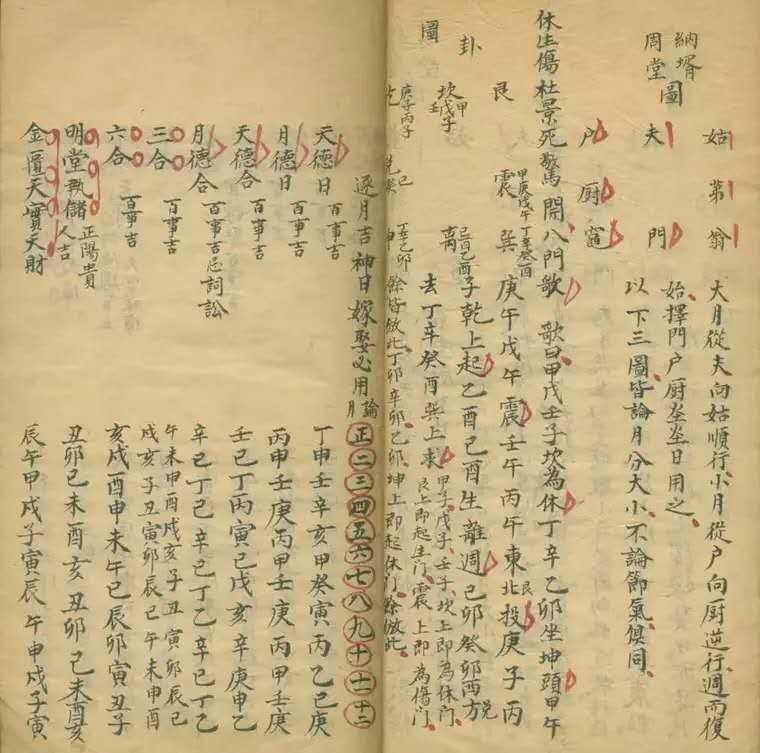 納壻周堂圖
姑 弟 翁 大月從夫向姑順行小月從戶向廚逆行週而復
夫 門 始擇門戶廚坐坐日用之
戶 廚 竈 以下三圖皆論月分大小不論節氣俱同
休生傷杜景死驚開八門歌 歌曰甲戊壬子坎為休丁辛乙卯坐坤頭甲午
艮 震 甲庚戊午 巽 丁辛癸酉 庚午戊午震壬午丙午東北艮投庚子丙
卦 坎 甲戊子壬 离 己酉乙酉 子乾上起乙酉己酉生離週己卯癸卯西方兌
圖 去丁辛癸酉巽上求 甲子戊子壬子坎上即為休門
艮上即起生門震上即為傷門
庚子丙子 丁辛乙卯 餘皆倣此丁卯辛卯乙卯坤上即起休門餘倣此
逐月吉神日嫁娶必用 論月 正二三四五六七八九十十一十二
天德日 百事吉 丁申壬辛亥甲癸寅丙乙巳庚
月德日 百事吉 丙甲壬庚丙甲壬庚丙甲壬庚
天德合 百事吉 壬巳丁丙寅己戌亥辛庚申乙
月德合 百事吉忌詞訟 辛己丁己辛己丁乙辛己丁乙
三合 百事吉 午未申酉戌亥子丑寅卯辰巳
戌亥子丑寅卯辰巳午未申酉
六合 百事吉 亥戌酉申未午巳辰卯寅丑子
明堂執儲 正陽貴人吉 丑卯巳未酉亥丑卯巳未酉亥
金匱天寶天財 辰午申戌子寅辰午申戌子寅